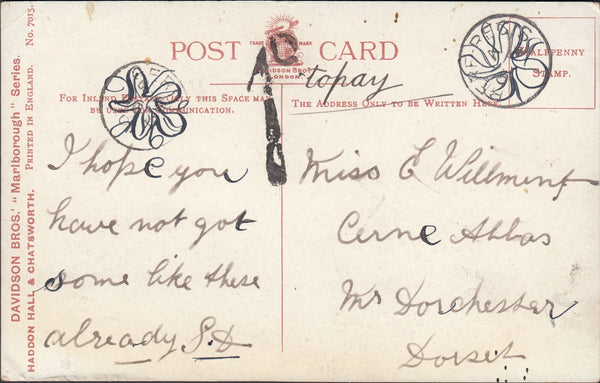 DAVIDSON BROS.' "Marlborough" Series.
HADDON HALL & CHATSWORTH. PRINTED IN ENGLAND. No. 7015.
POST CARD
TRADE MARK
DAVIDSON BROS
LONDON
1D
to pay
HALFPENNY
STAMP.
THE ADDRESS ONLY TO BE WRITTEN HERE
I hope you
have not got
some like these
already S.D
Miss E Willment
Cerne Abbas
Nr Dorchester
Dorset